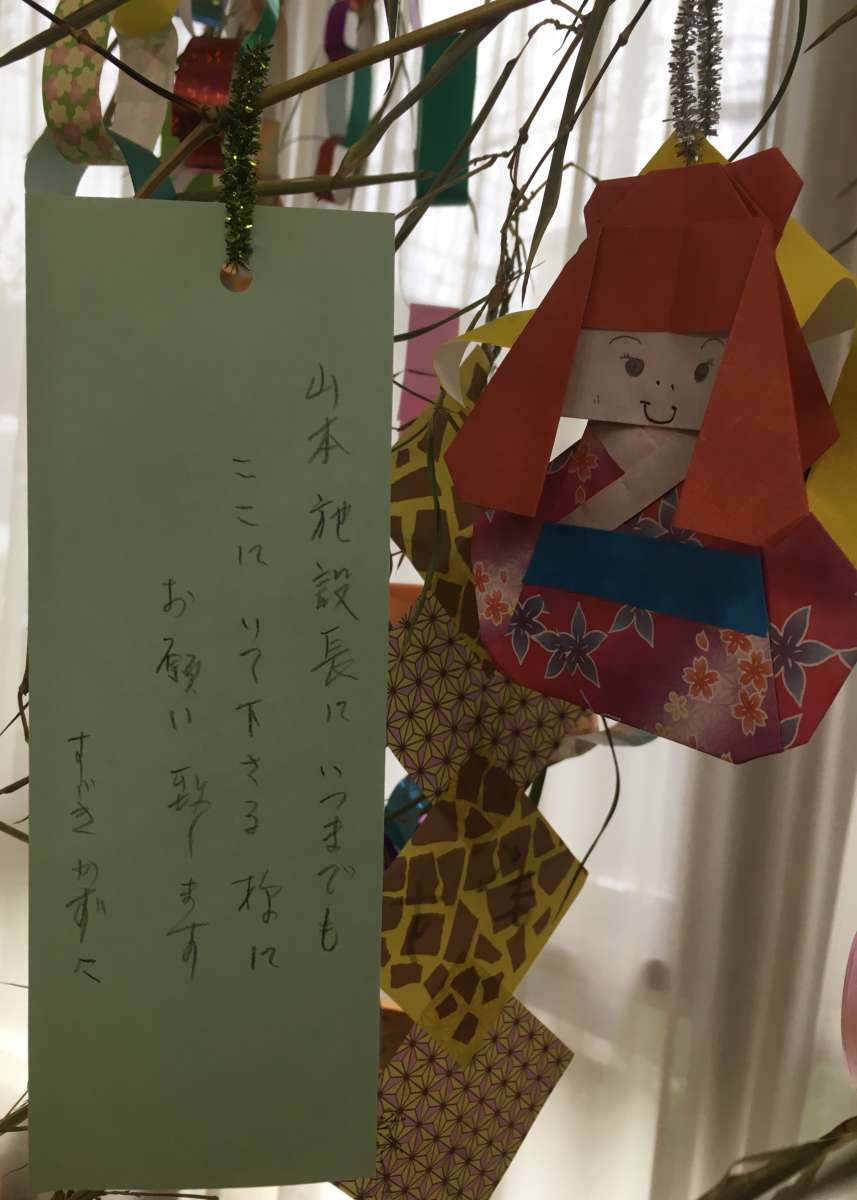 山本施設長に いつまでも
ここに いて下さる 様に
お願い致します
すずき かずこ